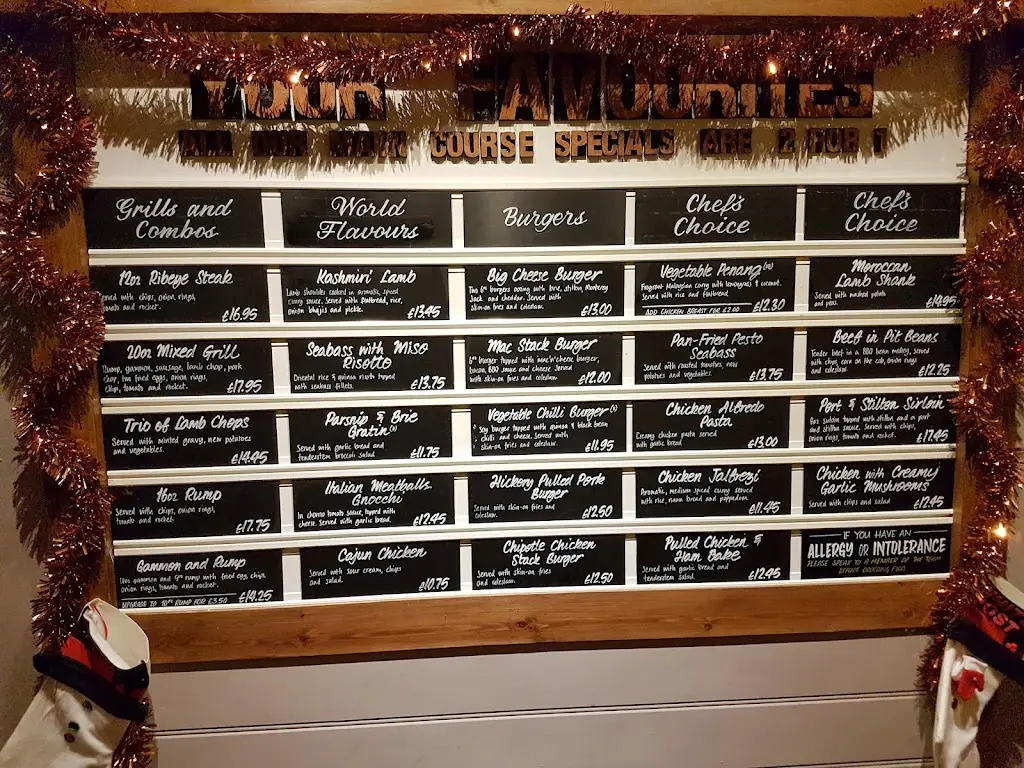 YOUR FAVOURITES
ALL OUR MAIN COURSE SPECIALS ARE 2 FOR 1
Grills and
Combos
12oz Ribeye Steak
served with chips, onion rings,
tomato and rocket.
£16.95
20oz Mixed Grill
Rump, gammon, sausage, lamb chop, pork
chop, two fried eggs, onion rings,
chips, tomato and rocket.
£17.95
Trio of Lamb Chops
Served with minted gravy, new potatoes
and vegetables.
£14.45
16oz Rump
Served with chips, onion rings,
tomato and rocket.
£17.75
Gammon and Rump
10oz gammon and 5oz rump with fried egg, chips,
onion rings, tomato and rocket.
UPGRADE TO 10oz RUMP FOR £3.50
£14.25
World
Flavours
Kashmiri Lamb
Lamb shoulder cooked in aromatic, spiced
curry sauce. Served with flatbread, rice,
onion bhajis and pickle.
£13.45
Seabass with Miso
Risotto
Oriental rice & quinoa risotto topped
with seabass fillets.
£13.75
Parsnip & Brie
Gratin (v)
Served with garlic bread and
tenderstem broccoli salad
£11.75
Italian Meatballs
Gnocchi
In chorizo tomato sauce, topped with
cheese. Served with garlic bread.
£12.45
Cajun Chicken
Served with sour cream, chips
and salad.
£10.75
Burgers
Big Cheese Burger
Two 6oz burgers oozing with brie, stilton, Monterey
Jack and cheddar. Served with
skin-on fries and coleslaw.
£13.00
Mac Stack Burger
6oz burger topped with mac'n'cheese burger,
bacon, BBQ sauce and cheese. Served
with skin-on fries and coleslaw.
£12.00
Vegetable Chilli Burger (v)
Soy burger topped with quinoa & black bean
chilli and cheese. Served with
skin-on fries and coleslaw.
£11.95
Hickory Pulled Pork
Burger
Served with skin-on fries and
coleslaw.
£12.50
Chipotle Chicken
Stack Burger
Served with skin-on fries
and coleslaw
£12.50
Chef's
Choice
Vegetable Penang (v)
Fragrant Malaysian curry with lemongrass & coconut.
Served with rice and flatbread.
ADD CHICKEN BREAST FOR £2.00
£12.30
Pan-Fried Pesto
Seabass
Served with roasted tomatoes, new
potatoes and vegetables.
£13.75
Chicken Alfredo
Pasta
Creamy chicken pasta served
with garlic bread.
£13.00
Chicken Jalfrezi
Aromatic, medium spiced curry served
with rice, naan bread and poppadom.
£11.45
Pulled Chicken &
Ham Bake
Served with garlic bread and
tenderstem salad.
£12.45
Chef's
Choice
Moroccan
Lamb Shank
Served with mashed potato
and peas.
£14.95
Beef in Pit Beans
Tender beef in a BBQ bean medley, served
with chips, corn on the cob, onion rings
and coleslaw.
£12.25
Port & Stilton Sirloin
8oz sirloin topped with stilton and a port
and stilton sauce. Served with chips,
onion rings, tomato and rocket.
£17.45
Chicken with Creamy
Garlic Mushrooms
Served with chips and salad
£12.45
IF YOU HAVE AN
ALLERGY OR INTOLERANCE
PLEASE SPEAK TO A MEMBER OF THE TEAM
BEFORE ORDERING FOOD